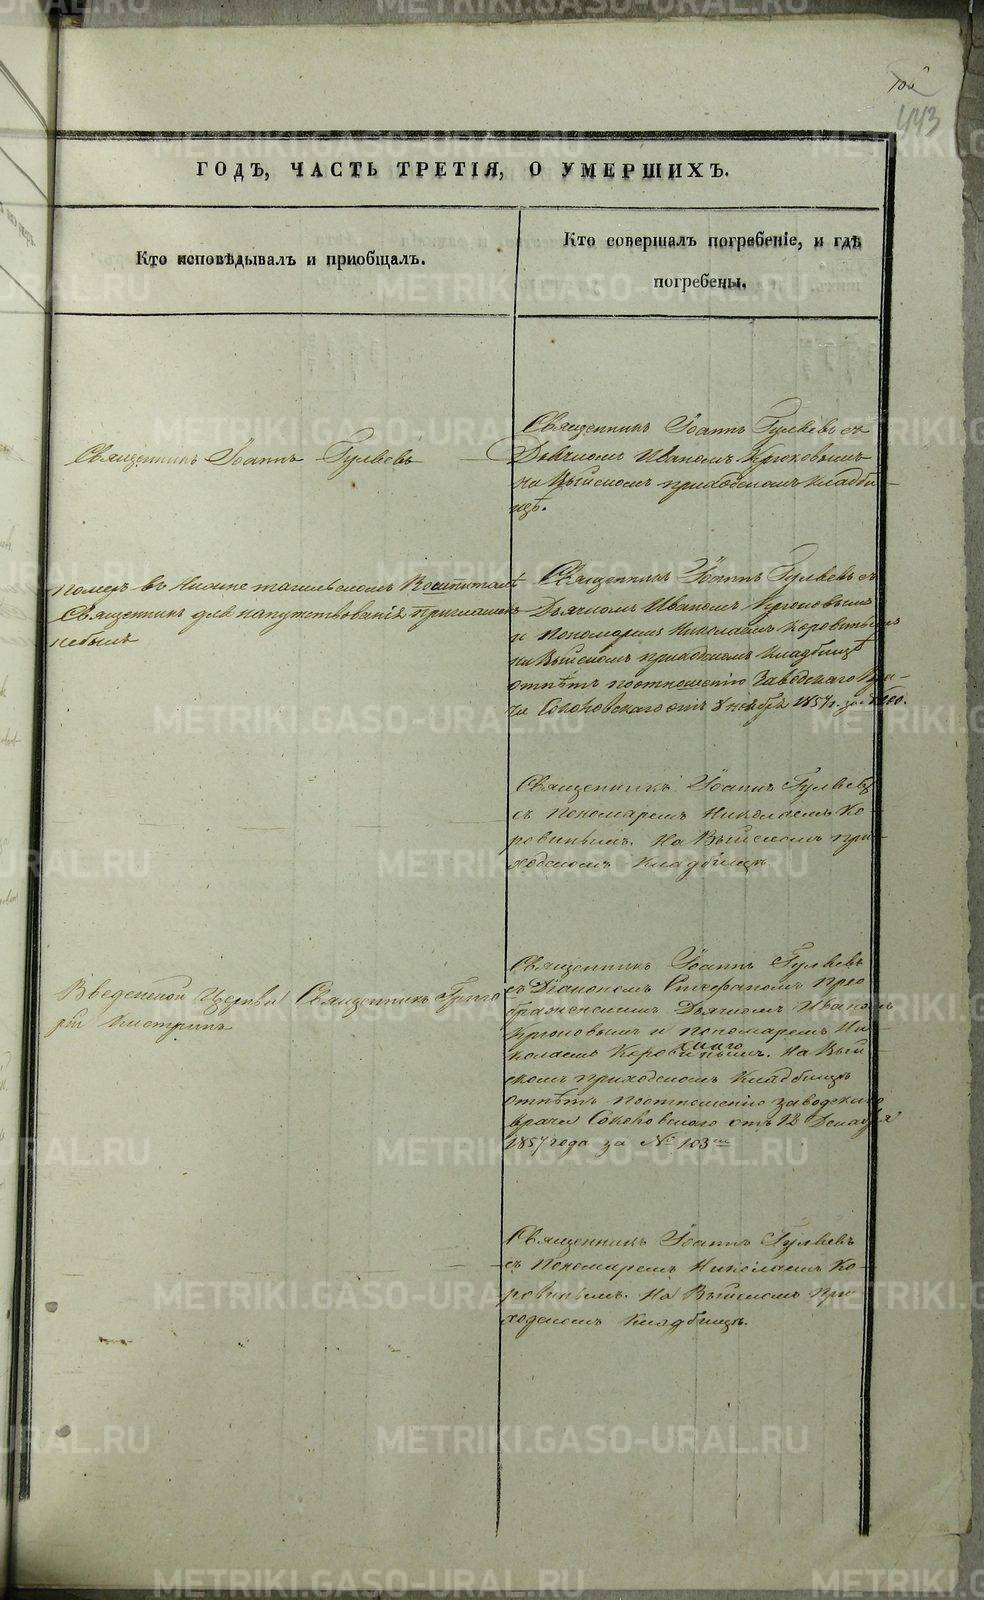 443
ГОДЪ, ЧАСТЬ ТРЕТІЯ, О УМЕРШИХЪ.
Кто исповѣдывалъ и приобщалъ.
Кто совершалъ погребеніе, и гдѣ
погребены.
Священникъ Іоаннъ Гуляевъ
Священникъ Іоаннъ Гуляевъ съ
Дьячкомъ Иваномъ Крюковымъ
на Выйскомъ приходскомъ кладби-
щѣ.
померъ въ Нижнетагильскомъ
Священникъ для напутствованія приглашенъ
небылъ
Священникъ Іоаннъ Гуляевъ съ
Дьячкомъ Иваномъ Крюковымъ
и Пономаремъ Николаемъ Коровинымъ
на Выйскомъ приходскомъ кладбищѣ
отпѣтъ поотношенію Заводскаго Вра-
ча Соколовскаго отъ 8 ноября 1857 г. за
Священникъ Іоаннъ Гуляевъ
съ Пономаремъ Николаемъ Ко-
ровинымъ. На Выйскомъ при-
ходскомъ кладбищѣ
Введенской Церкви Священникъ Григо
рій
Священникъ Іоаннъ Гуляевъ
съ Діакономъ Стефаномъ Прео
браженскимъ Дьячкомъ Иваномъ
Крюковымъ и пономаремъ Ни-
колаемъ Коровинымъ. На Вый-
скомъ приходскомъ кладбищѣ
отпѣтъ поотношенію заводскаго
врача Соколовскаго отъ 12 Декабря
1857 года за № 103
Священникъ Іоаннъ Гуляевъ
съ Пономаремъ Николаемъ Ко-
ровинымъ. На Выйскомъ при-
ходскомъ кладбищѣ.
METRIKI.GASO-URAL.RU